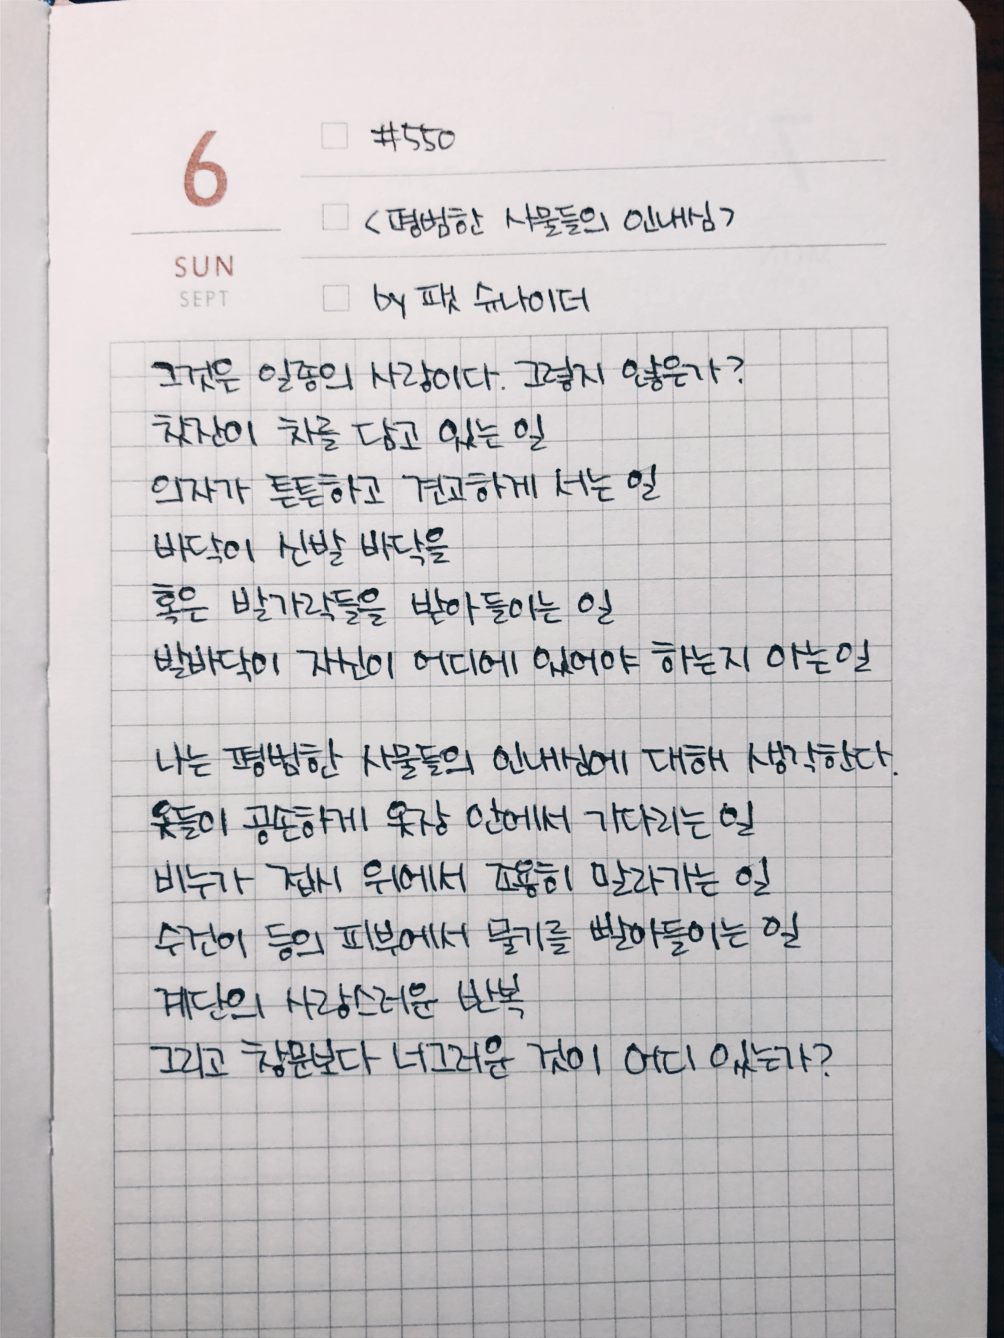 6
SUN
SEPT
#550
<평범한 사물들의 인내심>
by 팻 슈나이더
그것은 일종의 사랑이다. 그렇지 않은가?
찻잔이 차를 담고 있는 일
의자가 튼튼하고 견고하게 서는 일
바닥이 신발 바닥을
혹은 발가락들을 받아들이는 일
발바닥이 자신이 어디에 있어야 하는지 아는일
나는 평범한 사물들의 인내심에 대해 생각한다.
옷들이 공손하게 옷장 안에서 기다리는 일
비누가 접시 위에서 조용히 말라가는 일
수건이 등의 피부에서 물기를 빨아들이는 일
계단의 사랑스러운 반복
그리고 창문보다 너그러운 것이 어디 있는가?